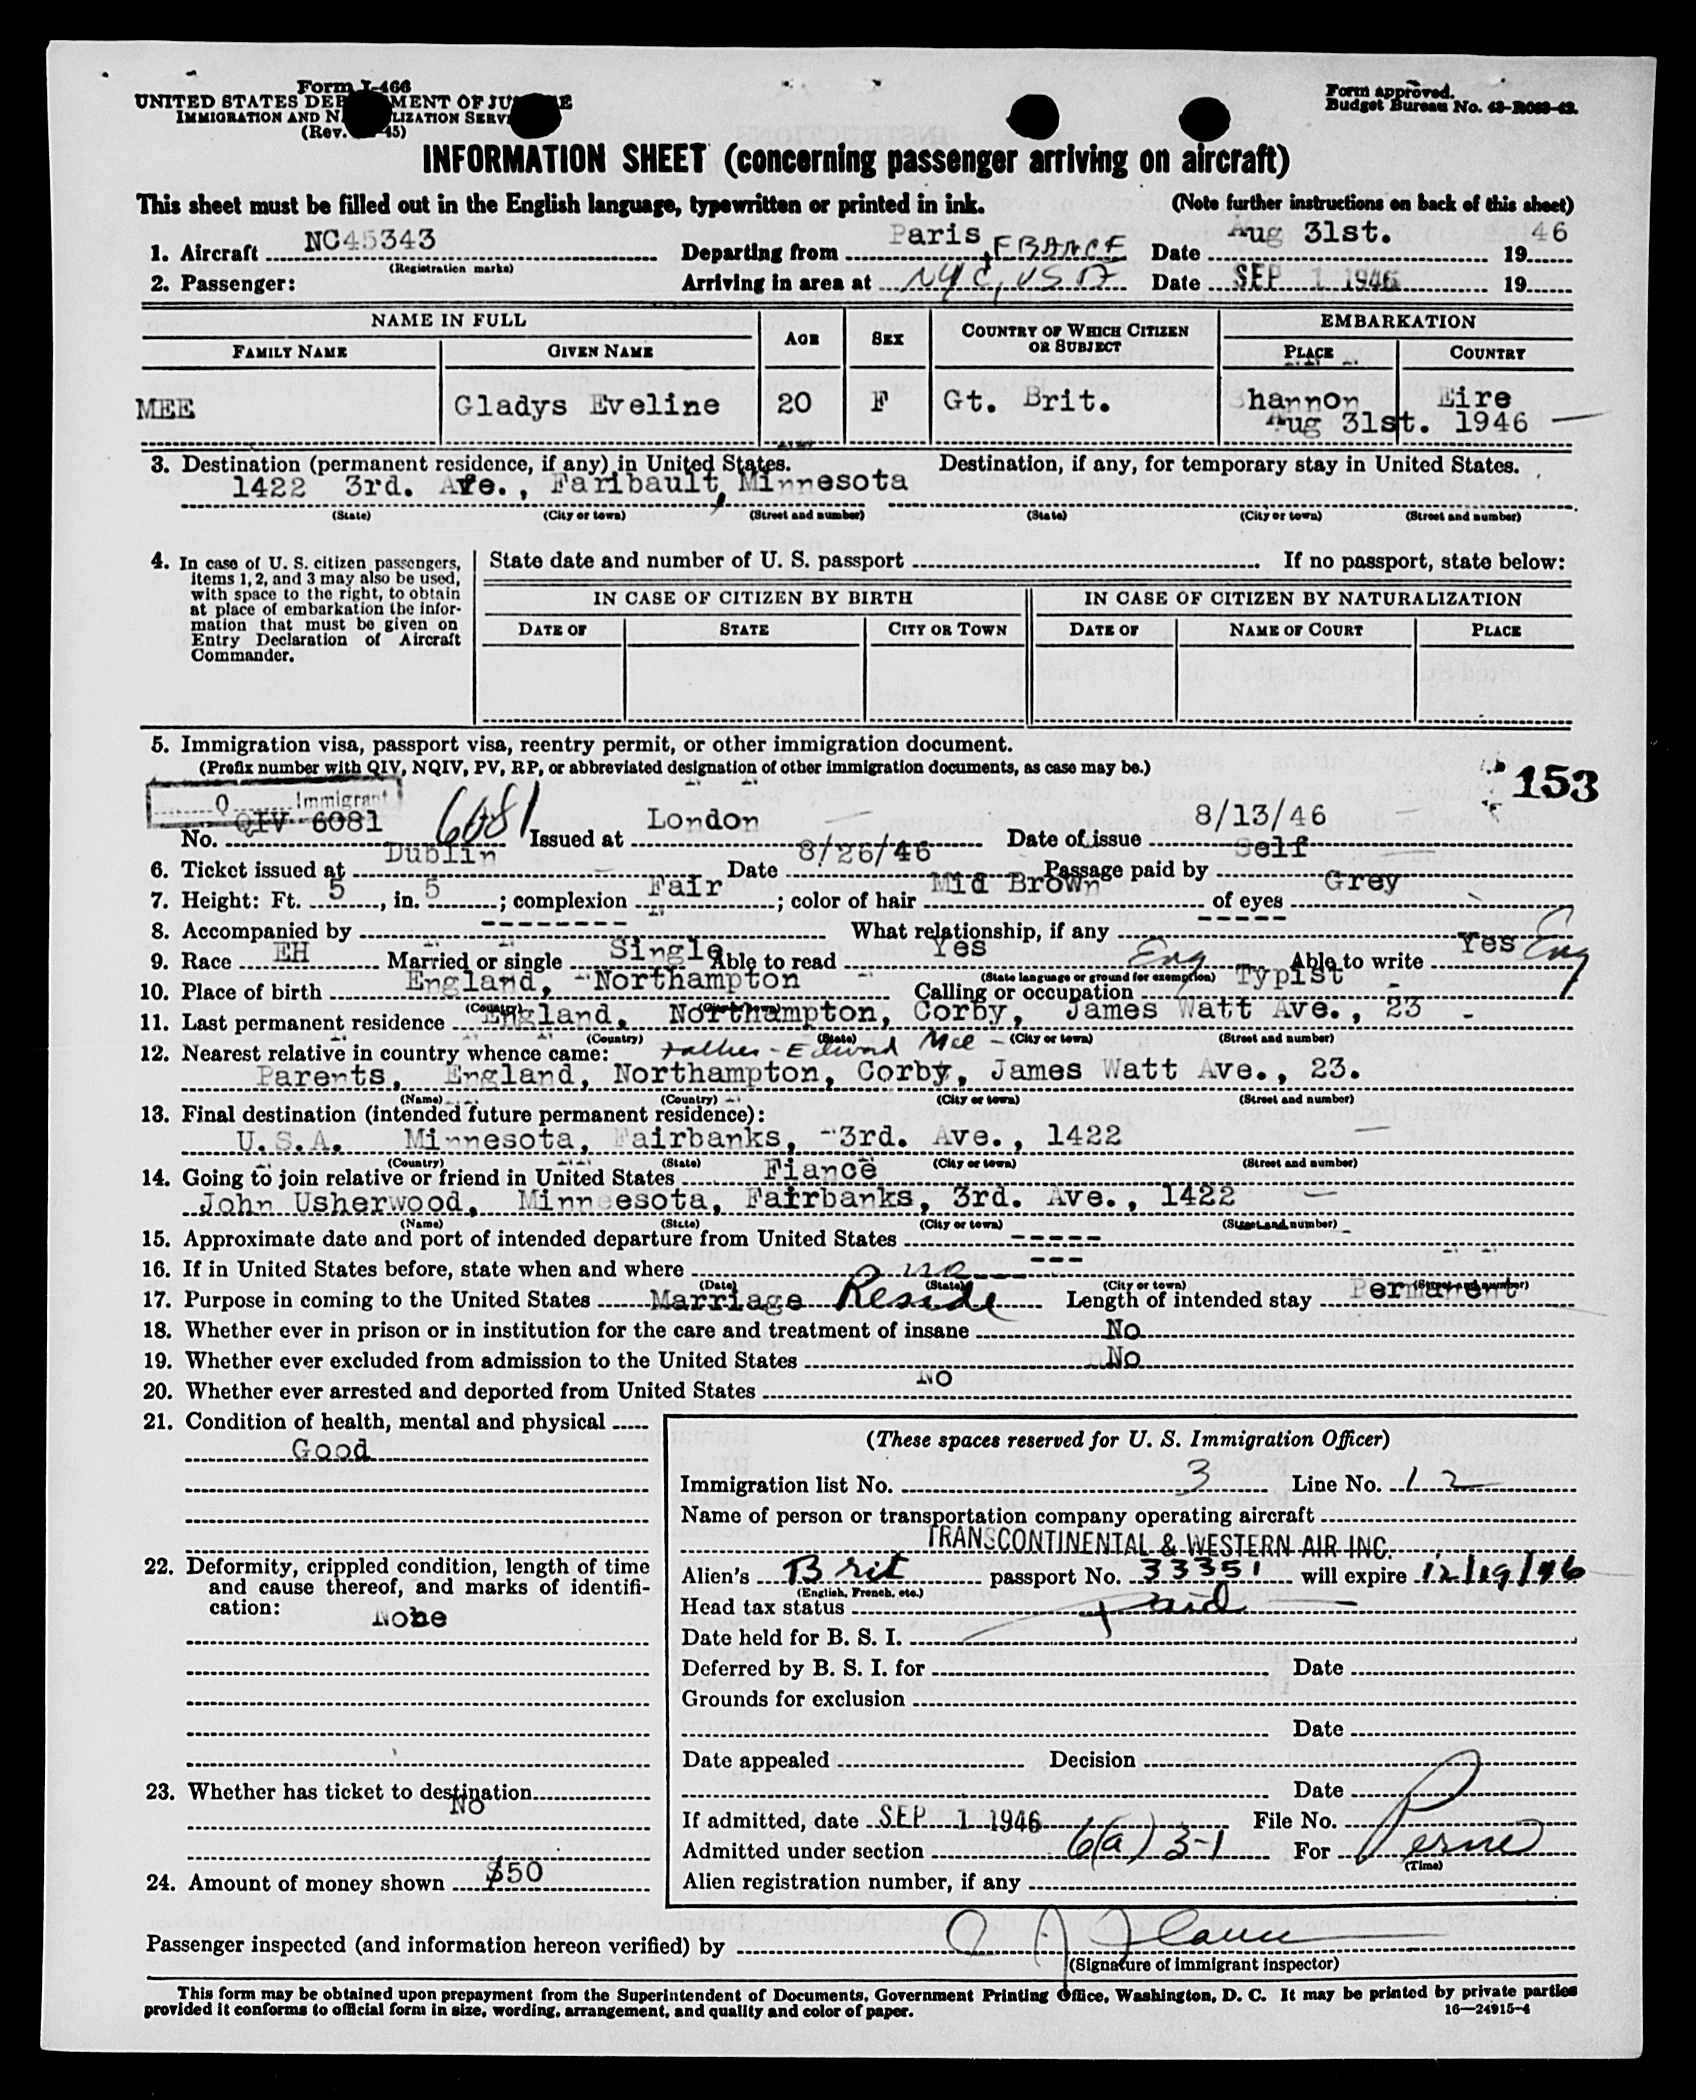 Form I-466
UNITED STATES DEP MENT OF JU E
IMMIGRATION AND N LIZATION SERV
(Rev. 45)
Form approved.
Budget Bureau No. 43-R063-42.
INFORMATION SHEET (concerning passenger arriving on aircraft)
This sheet must be filled out in the English language, typewritten or printed in ink. (Note further instructions on back of this sheet)
1. Aircraft NC45343 Departing from Paris, FRANCE Date Aug 31st. 1946
(Registration marks)
2. Passenger: Arriving in area at NYC, USA Date SEP 1 1946 19
NAME IN FULL AGE SEX COUNTRY OF WHICH CITIZEN OR SUBJECT EMBARKATION
FAMILY NAME GIVEN NAME PLACE COUNTRY
MEE Gladys Eveline 20 F Gt. Brit. Shannon Eire
Aug 31st. 1946
3. Destination (permanent residence, if any) in United States. Destination, if any, for temporary stay in United States.
1422 3rd. Ave., Faribault, Minnesota
(State) (City or town) (Street and number) (State) (City or town) (Street and number)
4. In case of U. S. citizen passengers, items 1, 2, and 3 may also be used, with space to the right, to obtain at place of embarkation the information that must be given on Entry Declaration of Aircraft Commander.
State date and number of U. S. passport If no passport, state below:
IN CASE OF CITIZEN BY BIRTH IN CASE OF CITIZEN BY NATURALIZATION
DATE OF STATE CITY OR TOWN DATE OF NAME OF COURT PLACE
5. Immigration visa, passport visa, reentry permit, or other immigration document.
(Prefix number with QIV, NQIV, PV, RP, or abbreviated designation of other immigration documents, as case may be.)
153
Q Immigrant
No. QIV 6081 6081 Issued at London Date of issue 8/13/46
6. Ticket issued at Dublin Date 8/26/46 Passage paid by Self
7. Height: Ft. 5, in. 5; complexion Fair; color of hair Mid Brown of eyes Grey
8. Accompanied by -------- What relationship, if any -----
9. Race EH Married or single Single Able to read Yes Eng Able to write Yes Eng
(State language or ground for exemption)
10. Place of birth England, -Northampton Calling or occupation Typist
(Country) (City or town)
11. Last permanent residence England, Northampton, Corby, James Watt Ave., 23
(Country) (State) (City or town) (Street and number)
12. Nearest relative in country whence came: Father - Edward Mee -
Parents, England, Northampton, Corby, James Watt Ave., 23.
(Name) (Country) (City or town) (Street and number)
13. Final destination (intended future permanent residence):
U.S.A. Minnesota, Fairbanks, -3rd. Ave., 1422
(Country) (State) (City or town) (Street and number)
14. Going to join relative or friend in United States Fiance
John Usherwood, Minneesota, Fairbanks, 3rd. Ave., 1422
(Name) (State) (City or town) (Street and number)
15. Approximate date and port of intended departure from United States -----
16. If in United States before, state when and where no ---
(Date) (State) (City or town) (Street and number)
17. Purpose in coming to the United States Marriage Reside Length of intended stay Permanent
18. Whether ever in prison or in institution for the care and treatment of insane No
19. Whether ever excluded from admission to the United States No
20. Whether ever arrested and deported from United States No
21. Condition of health, mental and physical
Good
22. Deformity, crippled condition, length of time and cause thereof, and marks of identification:
None
23. Whether has ticket to destination
No
24. Amount of money shown $50
(These spaces reserved for U. S. Immigration Officer)
Immigration list No. 3 Line No. 12
Name of person or transportation company operating aircraft
TRANSCONTINENTAL & WESTERN AIR INC.
Alien's Brit passport No. 33351 will expire 12/19/46
(English, French, etc.)
Head tax status paid
Date held for B. S. I.
Deferred by B. S. I. for Date
Grounds for exclusion
Date
Date appealed Decision
Date
If admitted, date SEP 1 1946 File No.
Admitted under section 6(a)3-1 For Perm
(Time)
Alien registration number, if any
Passenger inspected (and information hereon verified) by
(Signature of immigrant inspector)
This form may be obtained upon prepayment from the Superintendent of Documents, Government Printing Office, Washington, D. C. It may be printed by private parties
provided it conforms to official form in size, wording, arrangement, and quality and color of paper. 16—24915-4